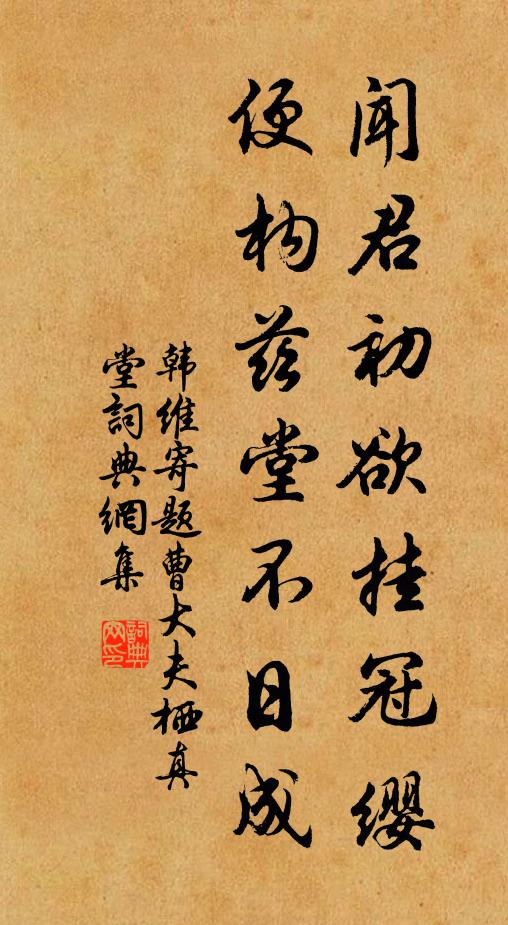 闻君初欲挂冠缨
便构兹堂不日成
韩维寄题曹大夫栖真
堂词典網集
詞典
网印